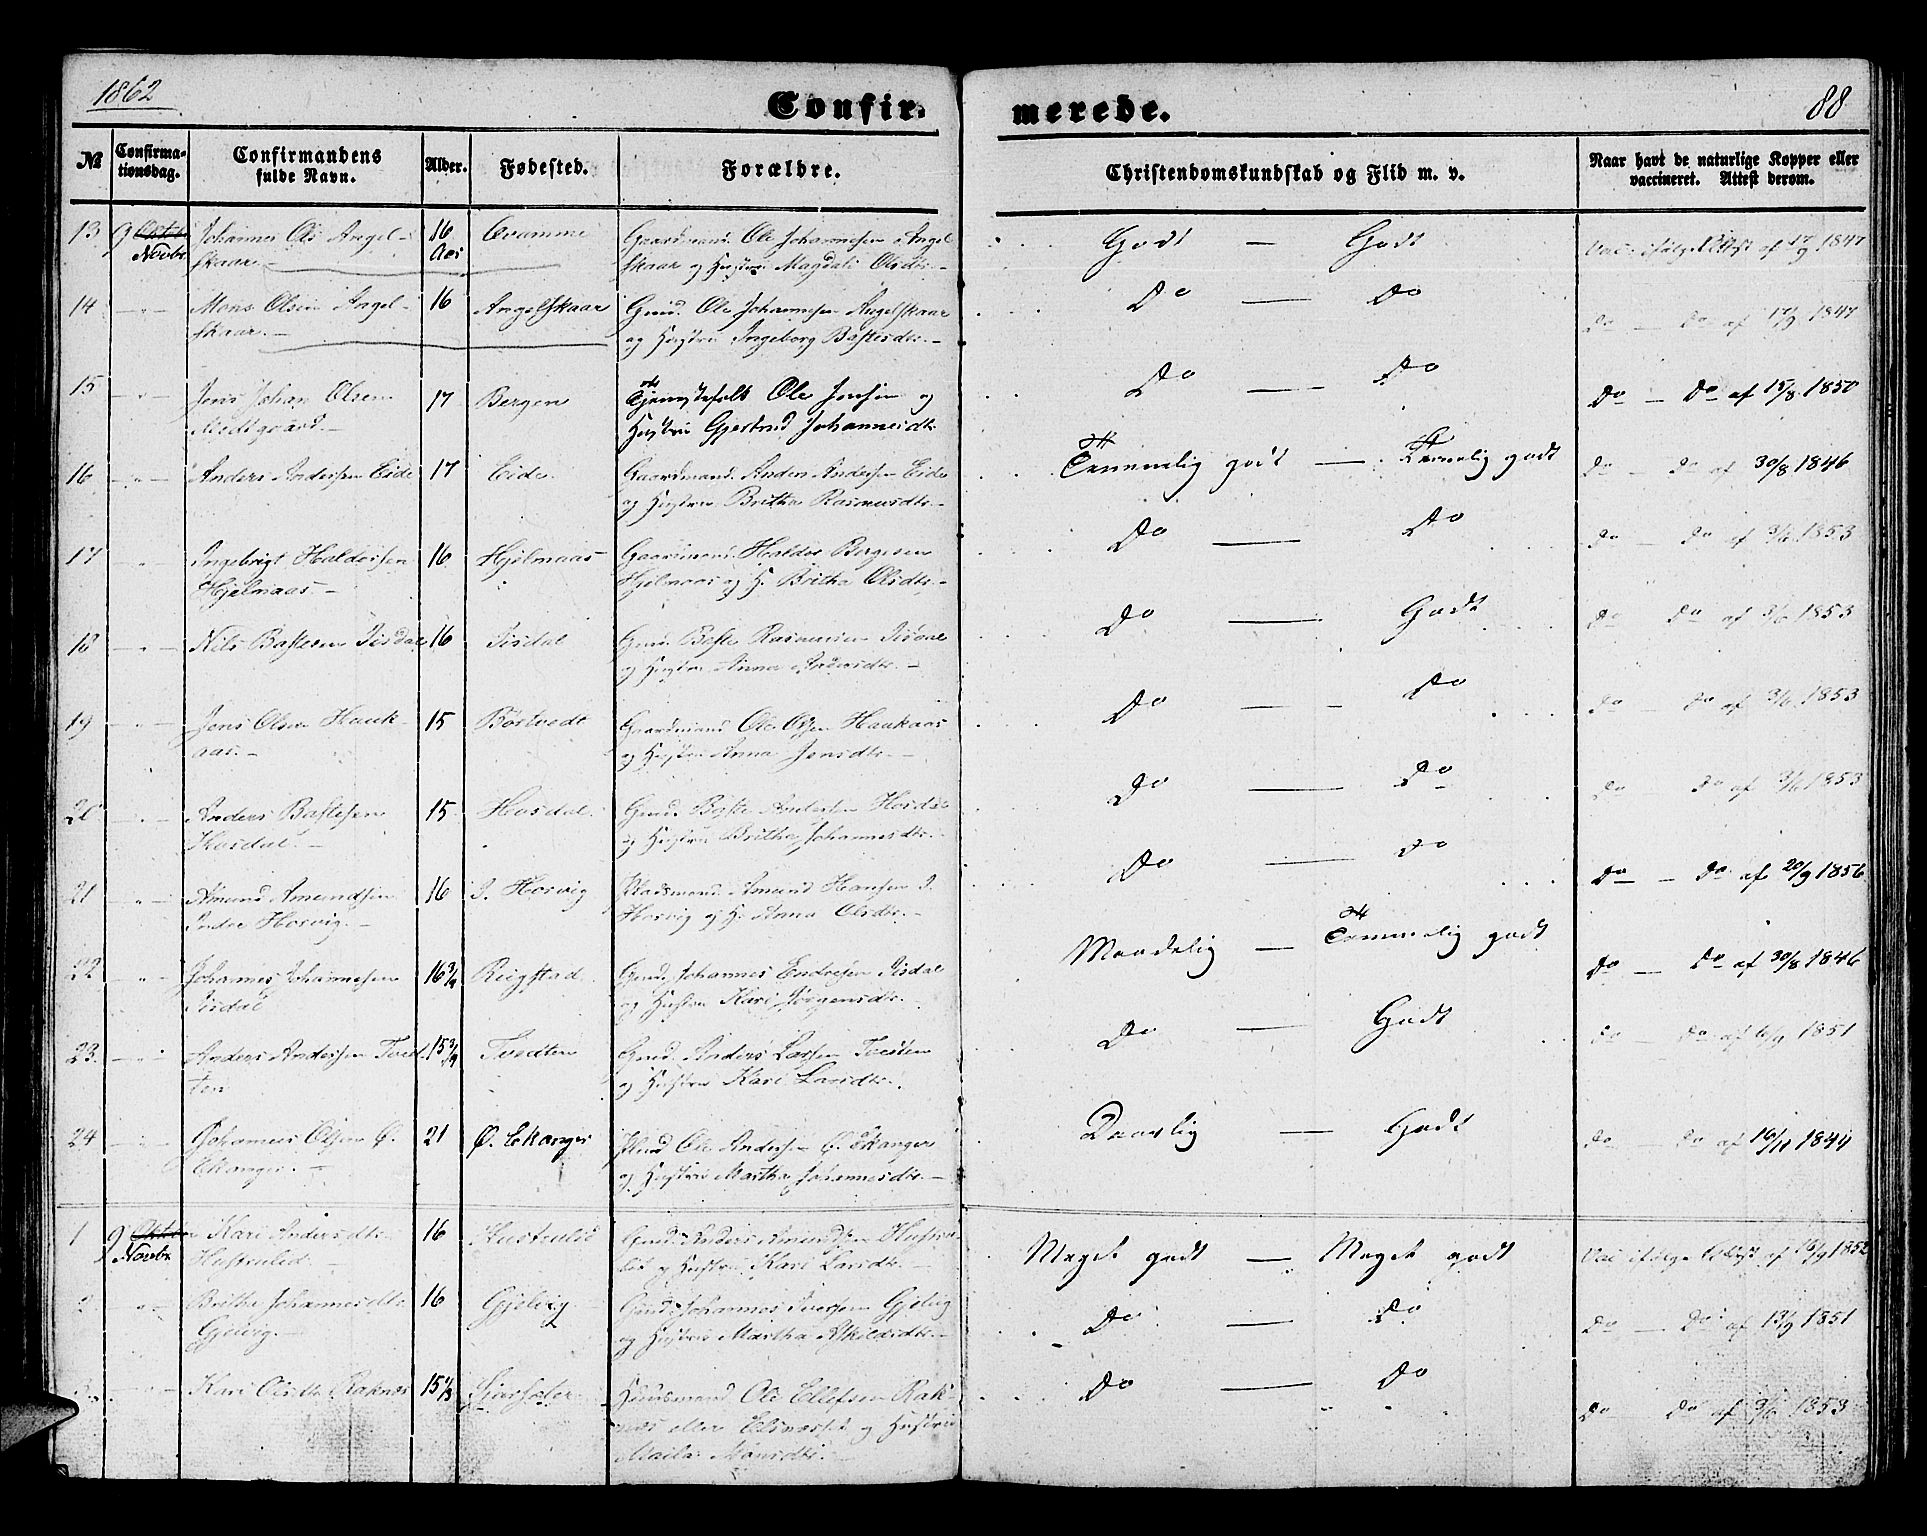 1862
Confir-
merede.
88
No
Confirma-
tionsdag.
Confirmandens
fulde Navn.
Alder.
Fødested.
Forældre.
Christendomskundskab og Flid m. v.
Naar havt de naturlige Kopper eller
vaccineret. Attest derom.
13 9 Octbr Johannes Ols Angel- 16 Qvamme Gaardmand Ole Johannesen Angel Godt — Godt Vac. ifølge Attest af 17/9 1847
Novbr skaar.- Aar skaar og Hustru Magdali Olsdtr.-
14 -"- Mons Olsen Angel- 16 Angelskaar Gmd. Ole Johannesen Angelskaar Do — Do Do — Do af 17/9 1847
skaar.- og Hustru Ingeborg Bastesdtr.-
15 -"- Jens Johan Olsen 17 Bergen Tjenestefolk Ole Jensen og Do — Do Do — Do af 15/8 1850
Midtgaard.- Hustru Gjertrud Johannesdtr
16 -"- Anders Andersen Eide 17 Eide. Gaardmand Anders Andersen Eide Temmelig godt — Temmelig godt Do — Do af 30/8 1846
og Hustru Britha Rasmusdtr.-
17 " Ingebrigt Haldorsen 16 Hjelmaas Gaardmand Haldor Bergesen Do — Do Do — Do af 3/6 1853
Hjelmaas.- Hjelmaas og H. Britha Olsdtr.-
18 -"- Nils Bastesen Iisdal 16 Iisdal Gmd. Baste Rasmussen Iisdal Do — Godt Do Do af 3/6 1853
og Hustru Anna Andersdtr.-
19 -"- Jens Olsen Hauk- 15 Börtvedt Gaardmand Ole Olsen Haukaas Do — Do Do — Do af 3/6 1853
aas.- og Hustru Anna Jensdtr.-
20 -"- Anders Bastesen 15 Hosdal. Gmd. Baste Andersen Hosdal Do — Do Do Do af 3/6 1853
Hosdal.- og Hustru Britha Johannesdtr.-
21 " Amund Amundsen 16 I. Horvig Pladsmand Amund Hansen I. Do — Do Do — Do af 20/9 1856
Indre Horvig.- Horvig og H. Anna Olsdtr.-
22 " Johannes Johannesen 16 3/4 Reigstad. Gmd. Johannes Endresen Iisdal Maadelig — Temmelig godt Do — Do af 30/8 1846
Iisdal og Hustru Kari Jørgensdtr.
23. -"- Anders Andersen Tvedt- 15 3/4 Tvedten Gmd. Anders Larsen Tvedten Do — Godt Do Do af 6/9 1851
ten og Hustru Kari Larsdtr.
24 -"- Johannes Olsen Ø. 21 Ø. Ekanger Hmd Ole Andersen Ø. Ekanger Daarlig — Godt Do — Do af 16/11 1844
Ekanger.- og Hustru Martha Johannesdtr.-
1 9 Oktobr Kari Andersdtr 16 Hustrulid Gmd. Anders Amundsen Hustru- Meget godt — Meget godt Vac. ifølge Attest af 15/9 1852
Novbr Hustrulid.- lid og Hustru Kari Larsdtr.-
2 " Britha Johannesdtr 16 Gjelvig Gmd. Johannes Iversen Gjelvig Do — Do Do — Do af 13/9 1851
Gjelvig.- og Hustru Martha Askildsdtr.-
3. -"- Kari Olsdtr Raknes 15 Huusmand Ole Ellefsen Rak- Do — Do Do Do af 3/6 1853
nes eller og Hustru
Monsdtr.-